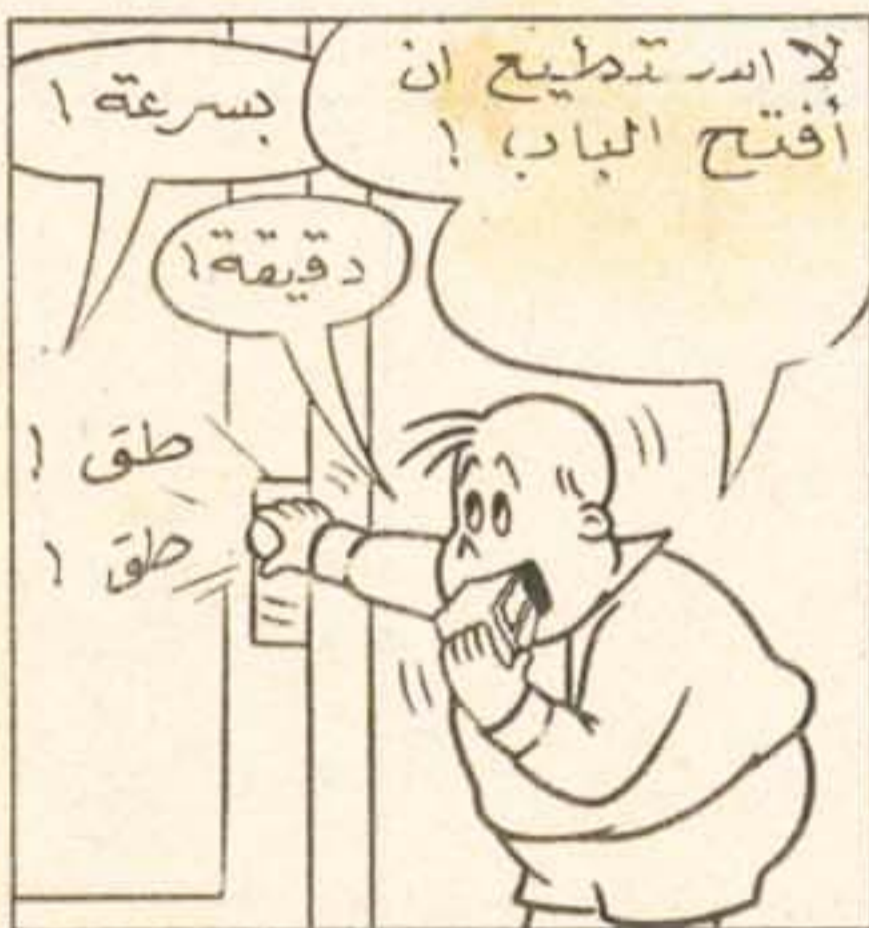 لا استطيع ان
أفتح الباب !
بسرعة !
دقيقة !
طق !
طق !